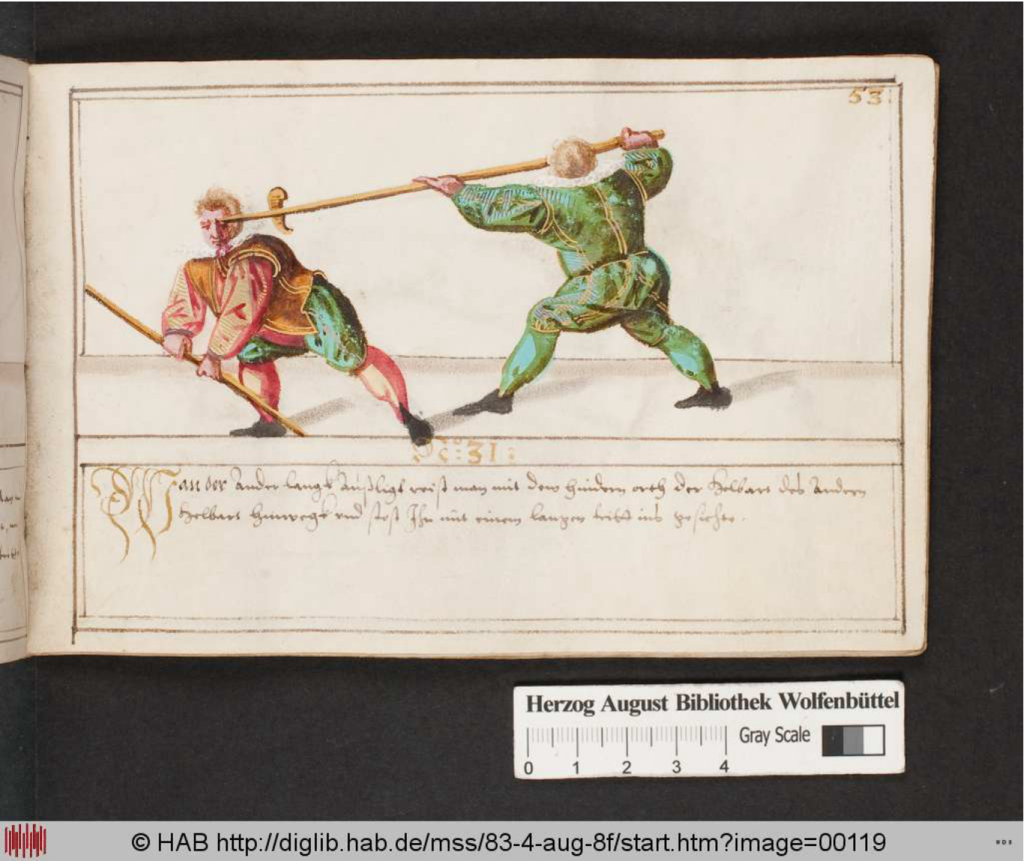 53:
No: 31:
Wan der Ander langk Außligt reist man mit dem hindern orth der Helbart des Andern
Helbart hinwegk und stost Ihn mit einem langen tritt ins gesichte.
Herzog August Bibliothek Wolfenbüttel
Gray Scale
0 1 2 3 4
© HAB http://diglib.hab.de/mss/83-4-aug-8f/start.htm?image=00119